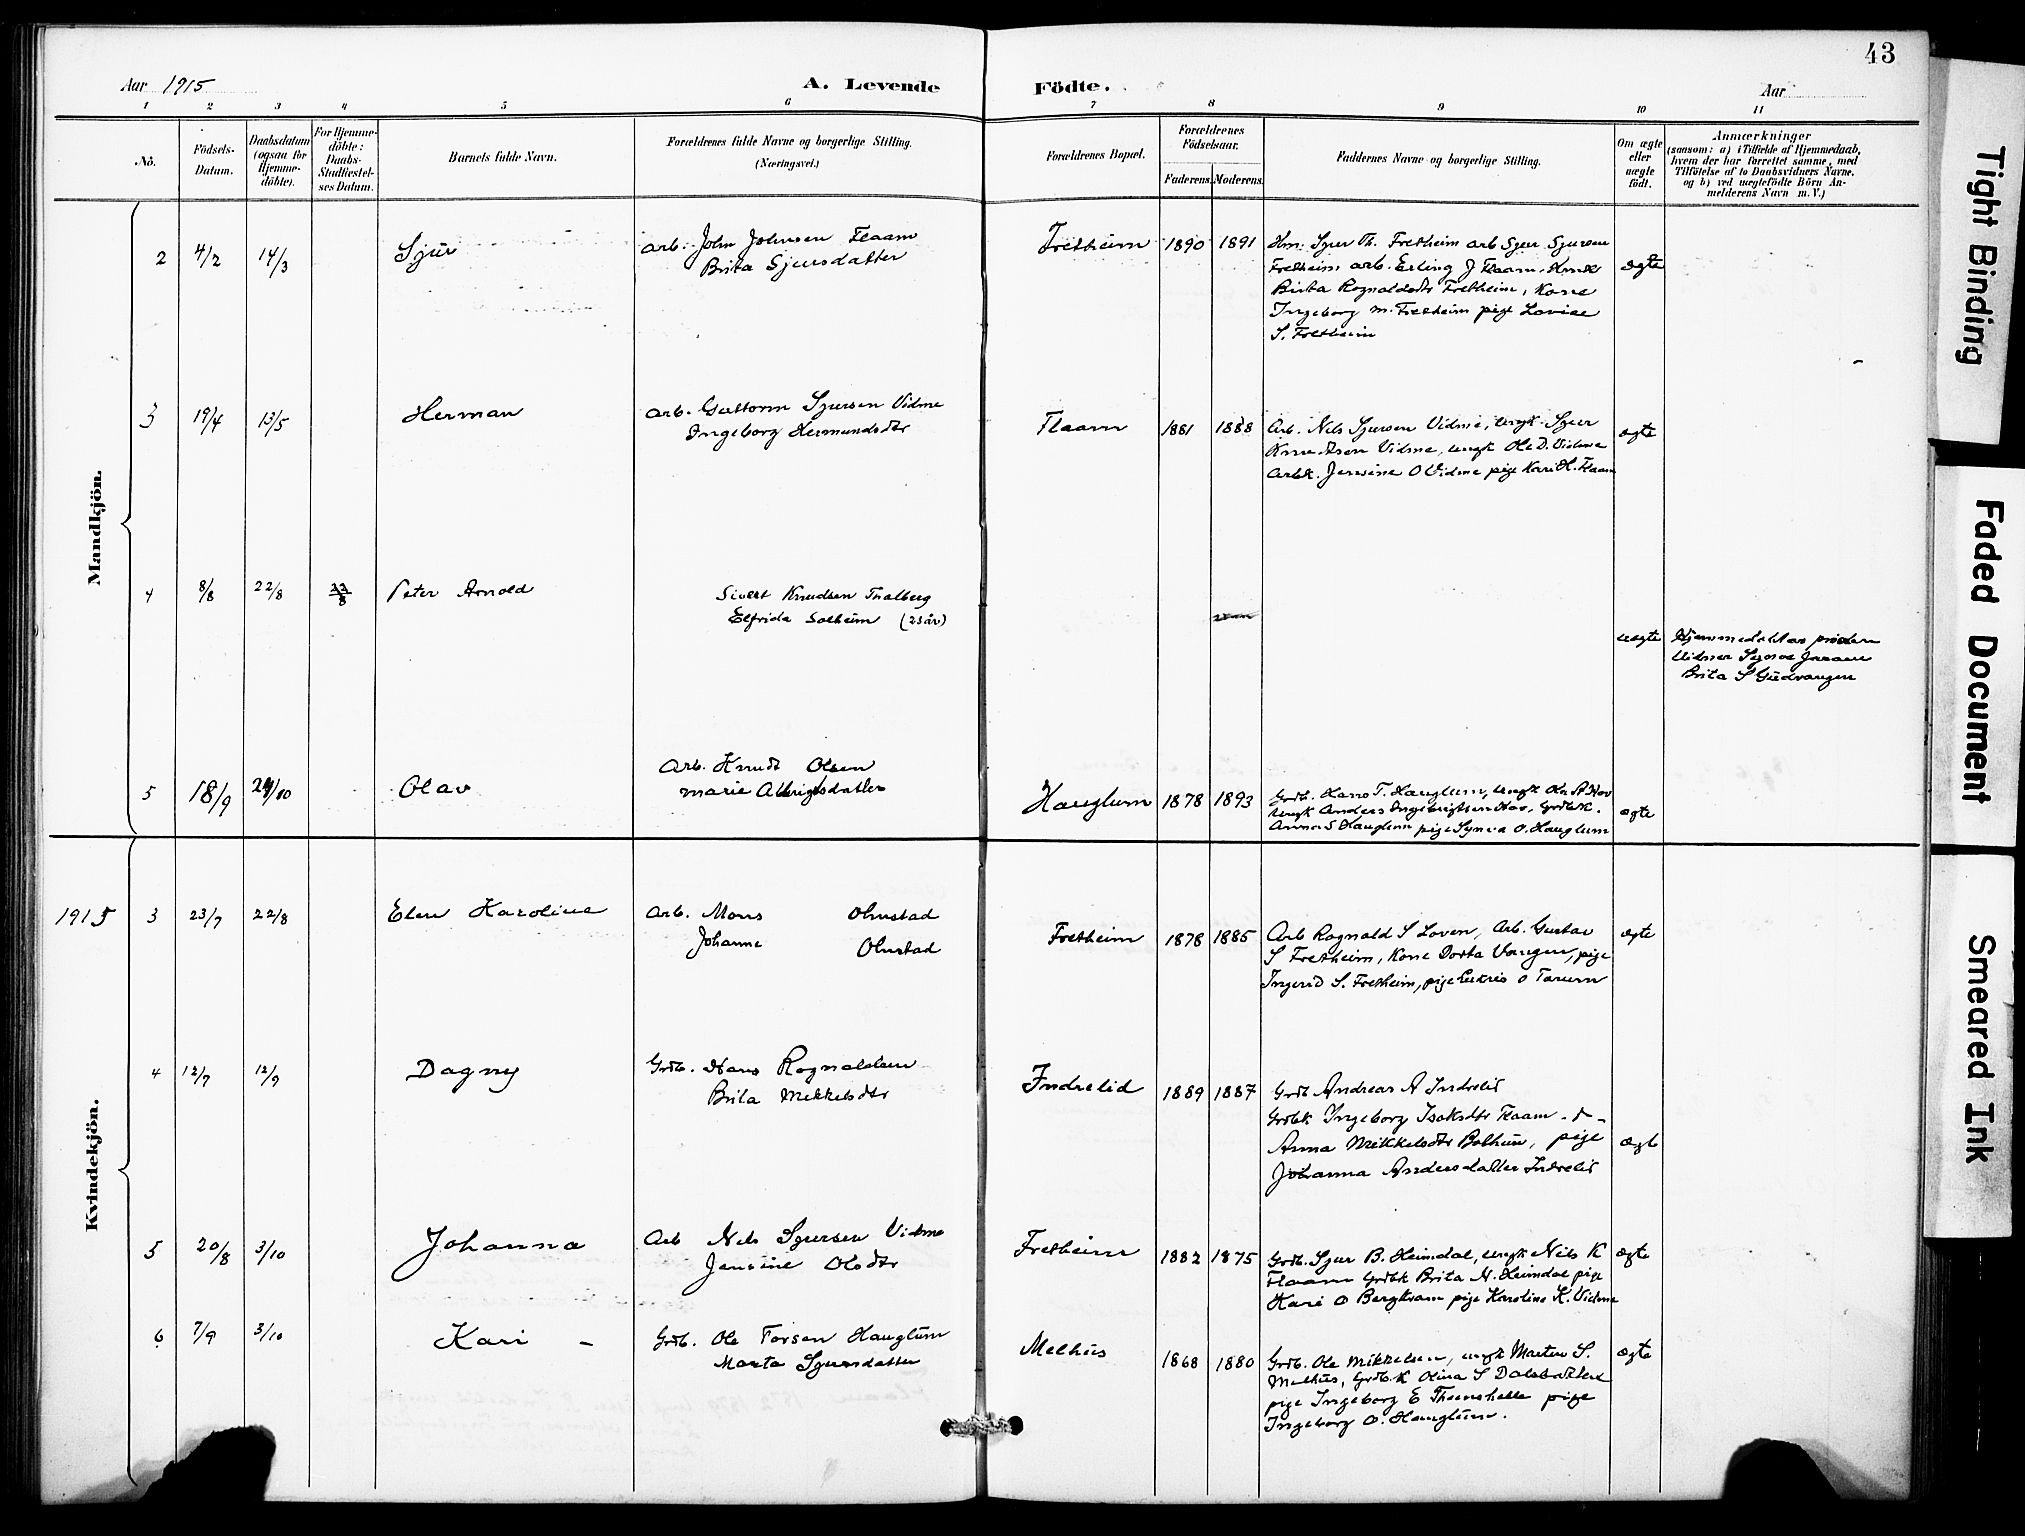 43
Aar 1915
A. Levende
Födte.
Aar
1 2 3 4 5 6 7 8 9 10 11
No.
Födsels-
Datum.
Daabsdatum
(ogsaa for
Hjemme-
döbte).
For Hjemme-
döbte:
Daabs-
Stadfæstel-
ses Datum.
Barnets fulde Navn.
Forældrenes fulde Navne og borgerlige Stilling.
(Næringsvei.)
Forældrenes Bopæl.
Forældrenes
Födselsaar.
Faderens. Moderens.
Faddernes Navne og borgerlige Stilling.
Om ægte
eller
uægte
födt.
Anmærkninger
(saasom: a) i Tilfælde af Hjemmedaab,
hvem der har forrettet samme, med
Tilföielse af to Daabsvidners Navne.
og b) ved uægtefödte Börn An-
melderens Navn m. V.)
Mandkjön.
2 4/2 14/3 Sjur
arb. John Johnsen Flaam
Brita Sjursdatter
Fretheim 1890 1891
Km. Sjur Th. Fretheim arb Sjur Sjursen
Fretheim arb. Erling J Flaam,
Brita Rognaldsdtr Fretheim, Kone
Ingeborg M. Fretheim pige Lovise
S. Fretheim
ægte
3 19/4 13/5 Herman
Arb. Guttorm Sjursen Vidme
Ingeborg Hermundsdtr
Flaam 1881 1888
Arb. Nils Sjursen Vidme, ungk. Sjur
Knudtsen Vidme, ungk Ole D. Vidme
Arbk. Jensine O Vidme pige Kari H. Flaam
ægte
4 8/8 22/8 22/8 Peter Arnold
Sivert Knudsen Thalberg
Elfrida Solheim (23 år)
uægte
Hjemmedøbt av
Vidner Synove
Brita S Gudvangen
5 18/9 24/10 Olav
Arb. Knudt Olsen
Marie Albrigtsdatter
Hauglum 1878 1893
Grdb. Hans T. Hauglum, ungk Ole A Hov
Ungk Anders Ingebrigtsen Hov, Grdbk.
Anna S Hauglum pige Synva O. Hauglum
ægte
Kvindekjön.
1915 3 23/7 22/8 Elen Karoline
Arb. Mons Olmstad
Johanne Olmstad
Fretheim 1878 1885
Arb Rognald S Loven, Arb. Gustav
S Fretheim, Kone Dorta Vangen, pige
Ingerid S. Fretheim, pige O Tarum
ægte
4 12/7 12/9 Dagny
Grdb. Hans Rognaldsen
Brita Mikkelsdtr
Indrelid 1889 1887
Grdb Andreas A Indrelid
Grdbk Ingeborg Isaksdtr Flaam - d -
Anna Mikkelsdtr Bolhun, pige
Johanna Andersdatter Indrelid
ægte
5 20/8 3/10 Johanna
Arb Nils Sjursen Vidme
Jensine Olsdtr
Fretheim 1882 1875
Grdb. Sjur B. Heimdal, ungk Nils K
Flaam Grdbk Brita N. Heimdal pige
Kari O Bergkvam pige Karoline K. Vidme
ægte
6 7/9 3/10 Kari -
Grdb. Ole Torsen Hauglum
Marta Sjursdatter
Melhus 1868 1880
Grdb. Ole Mikkelsen, ungk Marten S.
Melhus, Grdbk Olina S Dalsbotten
pige Ingeborg E Thunshelle pige
Ingeborg O. Hauglum.
ægte
Tight Binding
Faded Document
Smeared Ink